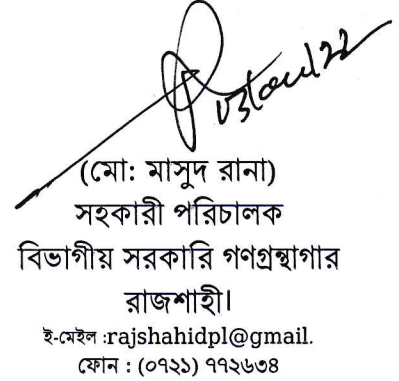 (মো: মাসুদ রানা)
সহকারী পরিচালক
বিভাগীয় সরকারি গণগ্রন্থাগার
রাজশাহী।
ই-মেইল :rajshahidpl@gmail.
ফোন : (০৭২১) ৭৭২৬৩৪